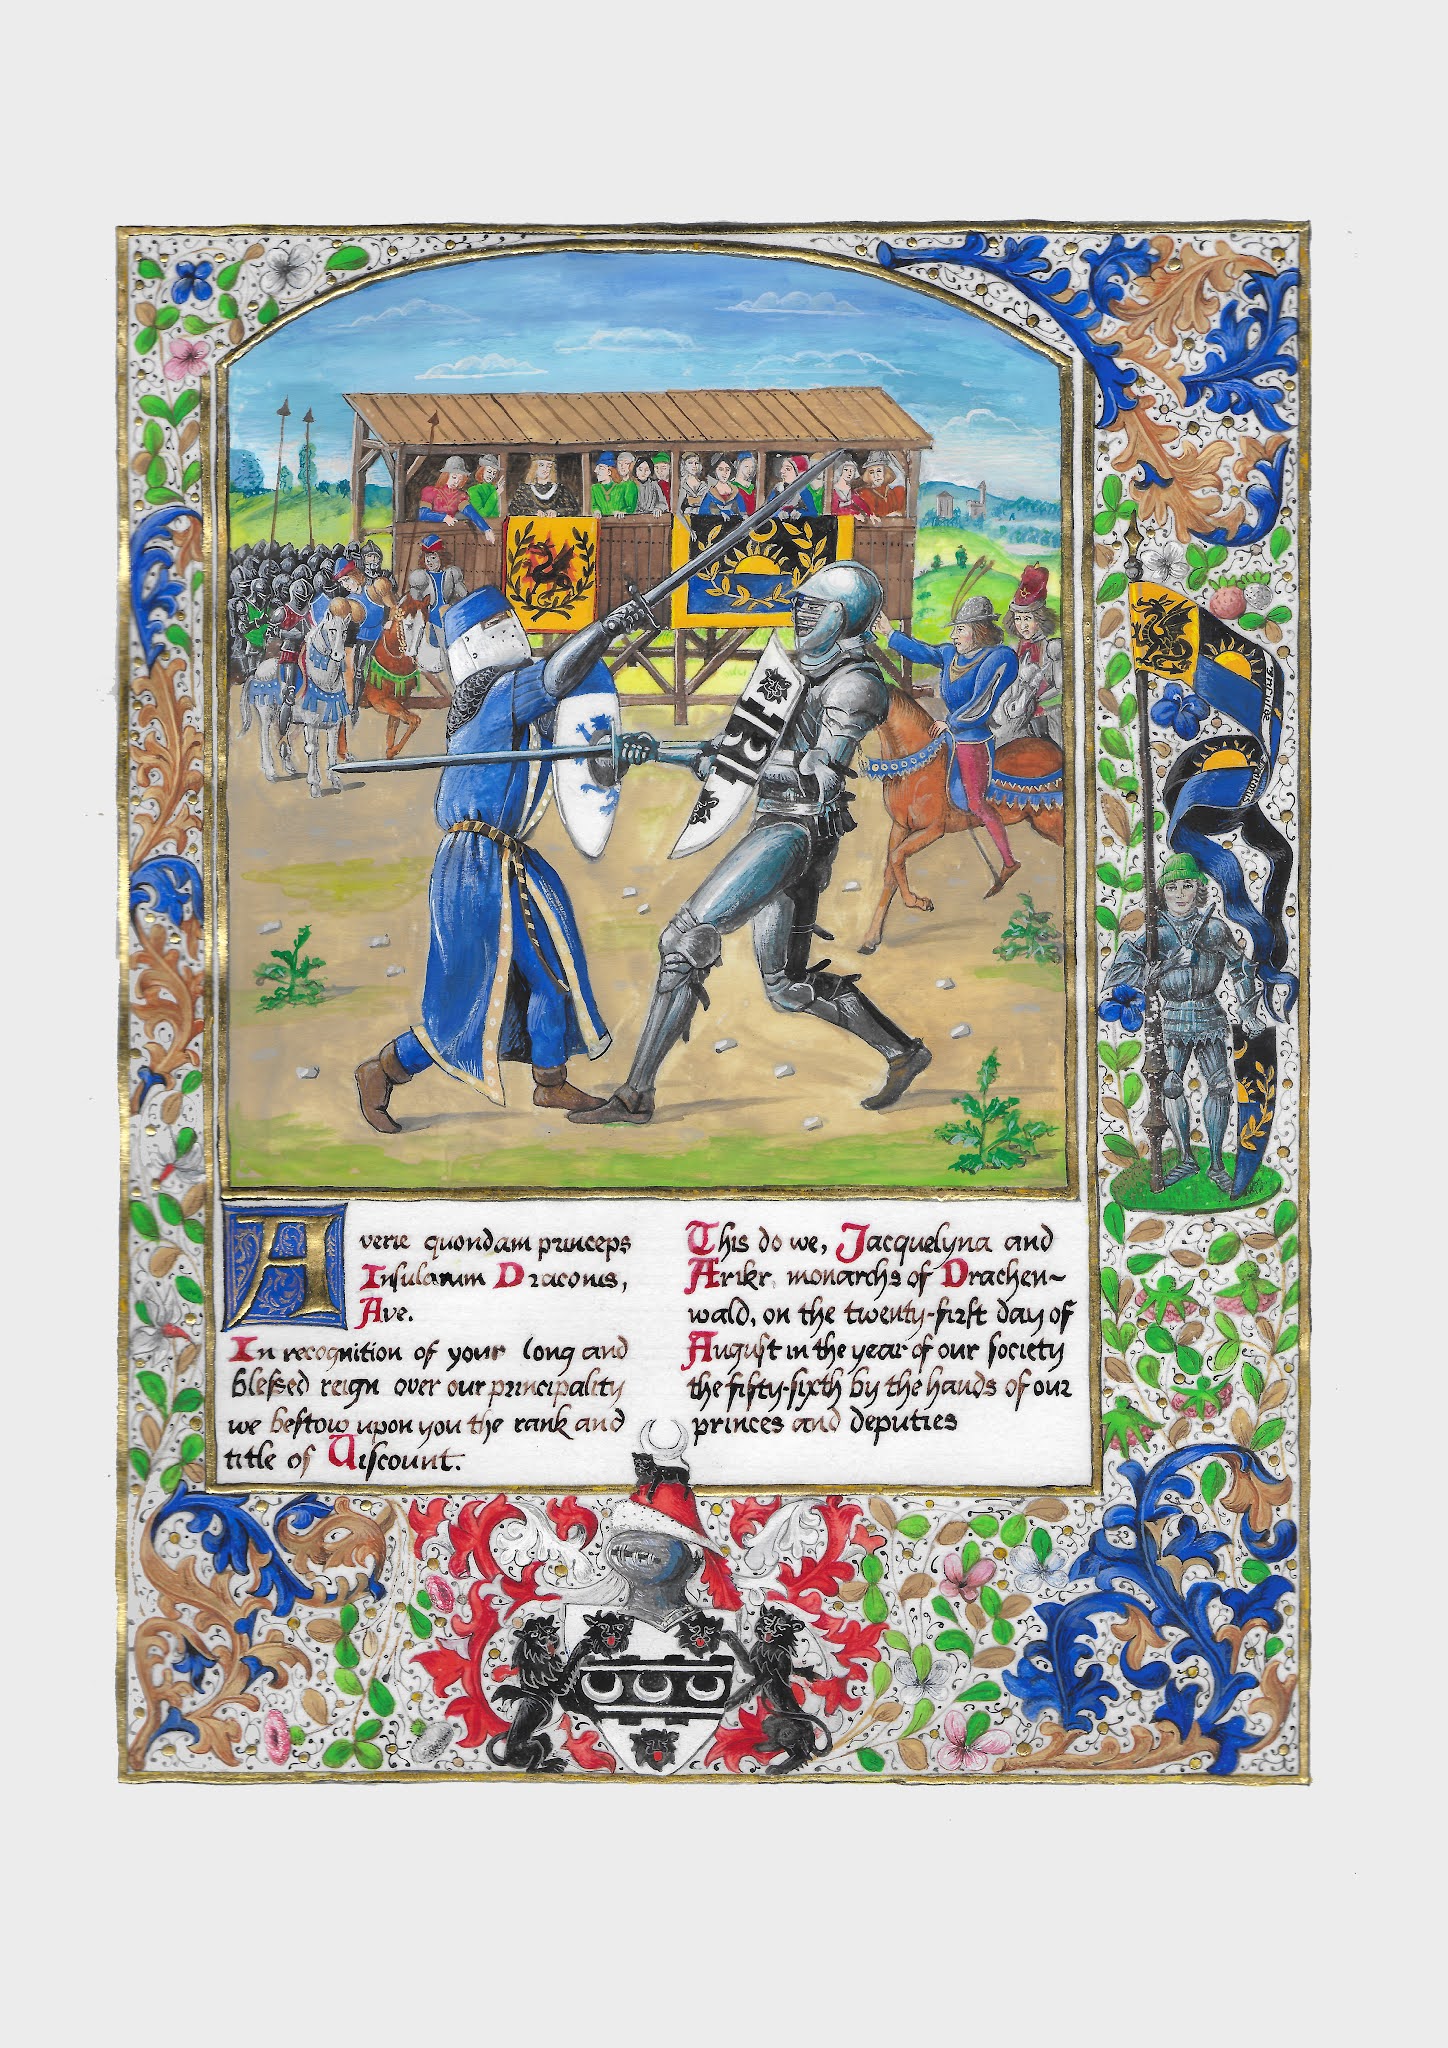 Averie quondam princeps
Insularum Draconis,
Ave.
In recognition of your long and
blessed reign over our principality
we bestow upon you the rank and
title of Viscount.
This do we, Jacquelyna and
Arikr, monarchs of Drachen~
wald, on the twenty-first day of
August in the year of our society
the fifty-sixth by the hands of our
princes and deputies